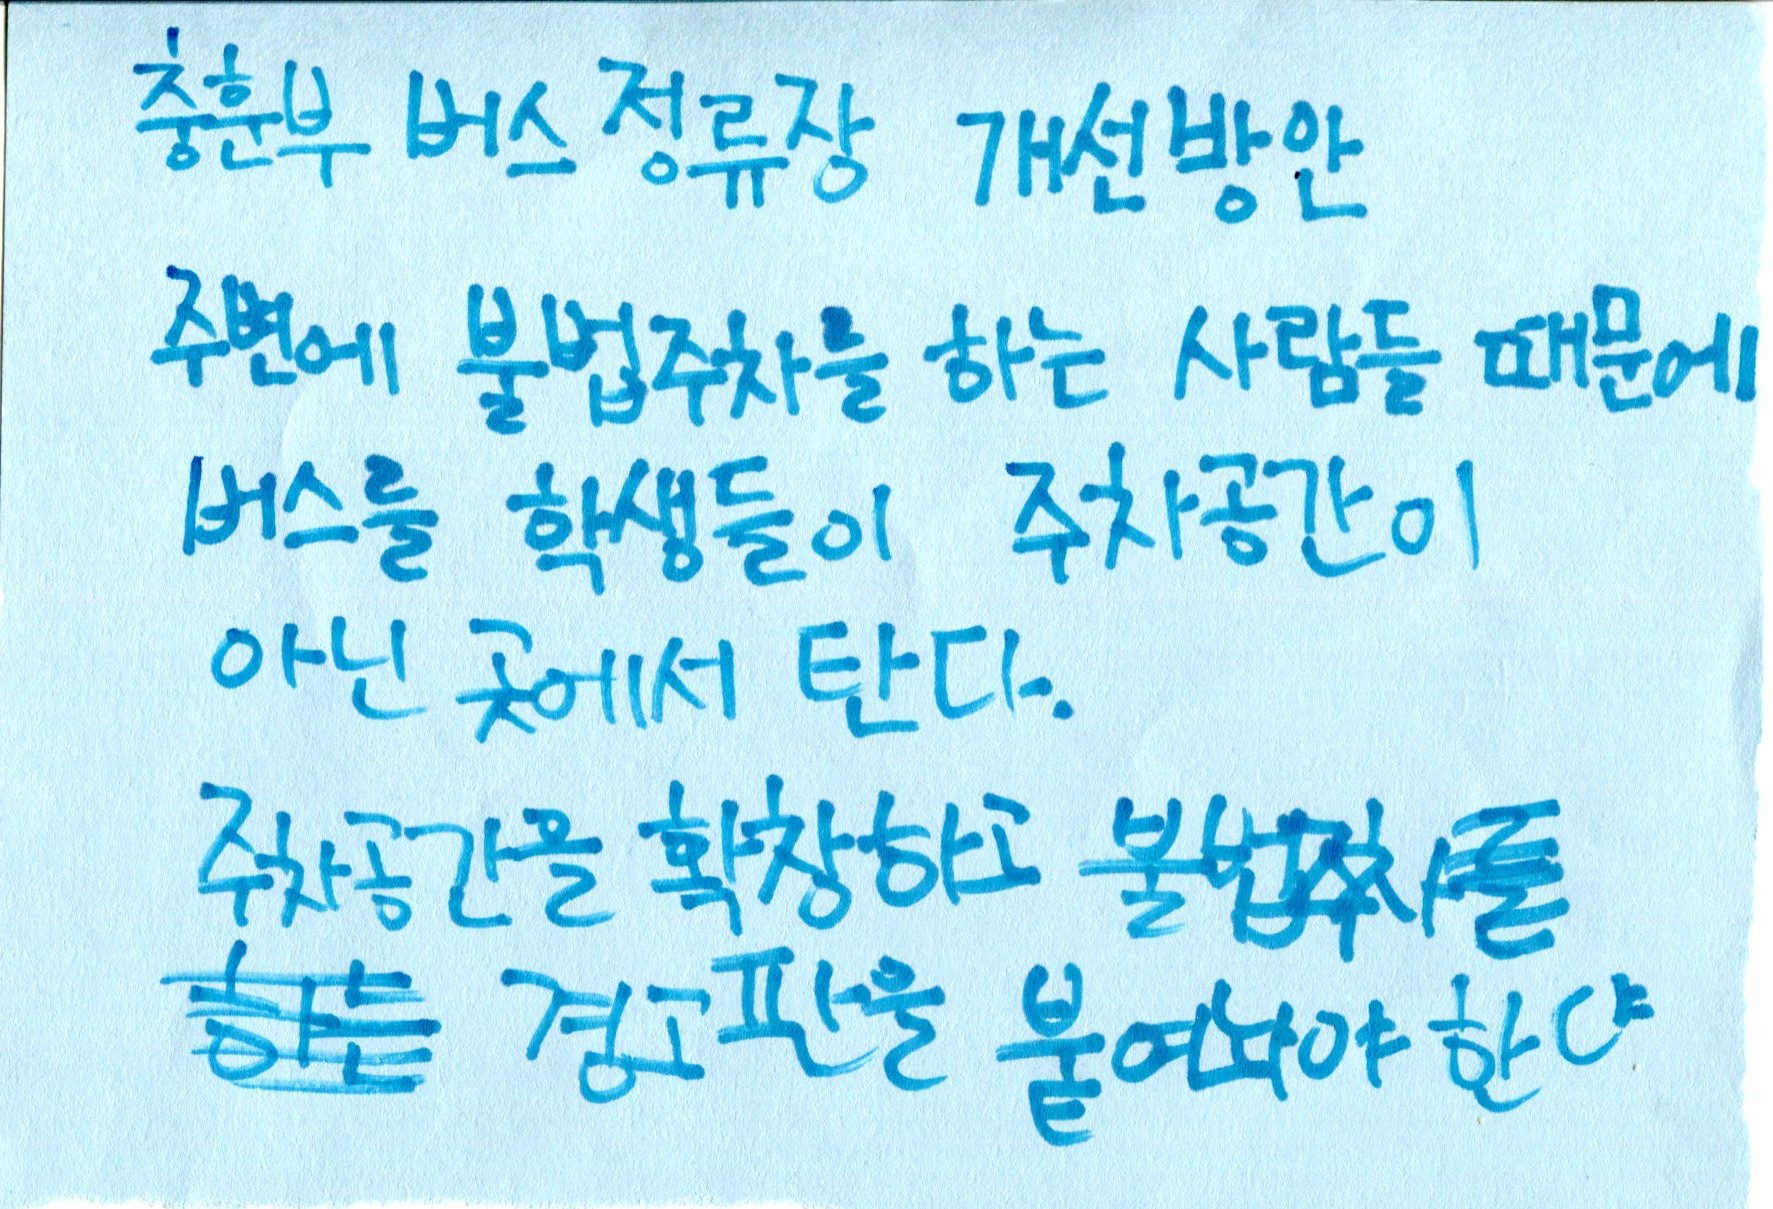 충훈부 버스 정류장 개선방안
주변에 불법주차를 하는 사람들 때문에
버스를 학생들이 주차공간이
아닌 곳에서 탄다.
주차공간을 확창하고 불법주차를
하는 경고판을 붙여놔야 한다